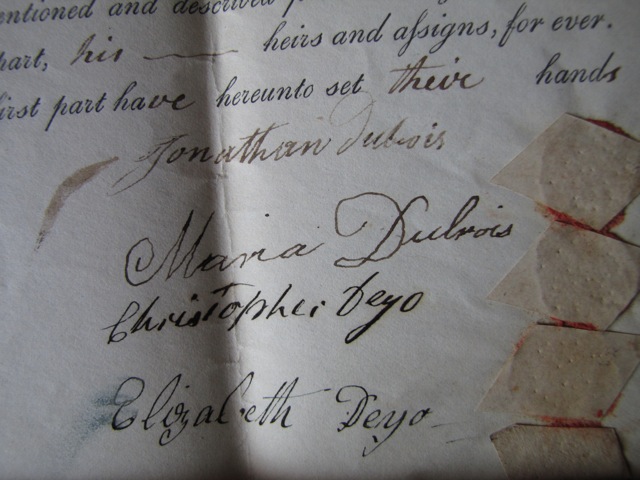 entioned and described
part, his heirs and aſsigns, for ever.
first part have hereunto set their hands
Jonathan Dubois
Maria Dubois
Christopher Deyo
Elizabeth Deyo